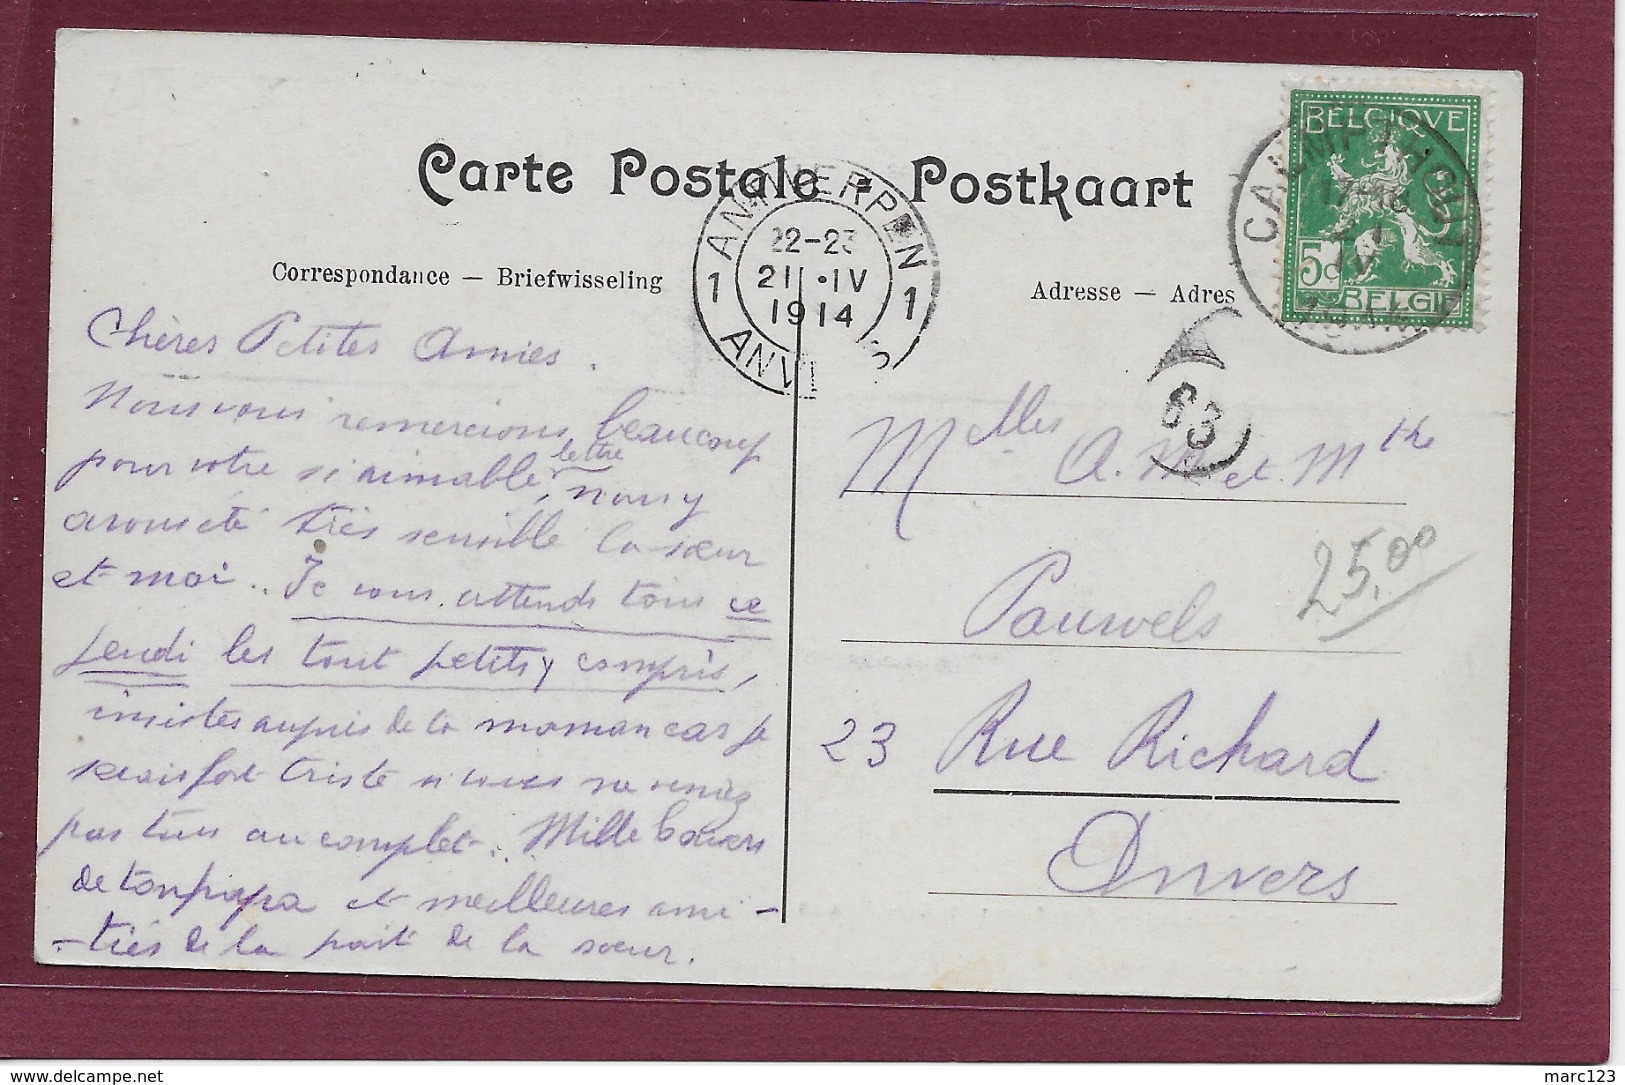 Carte Postale - Postkaart
Correspondance — Briefwisseling
Adresse — Adres
BELGIQUE
5c
BELGIË
CALMPTHOUT
17-18
ANTWERPEN
22-23
1 21 IV 1
1914
ANV S
63
Chères Petites Amies.
Nous vous remercions beaucoup
pour votre si aimable lettre, nous y
avons été très sensible la sœur
et moi. Je vous attends tous ce
jeudi les tout petits y compris,
insistes auprès de la maman car je
serais fort triste si vous ne veniez
pas tous au complet. Mille baisers
de ton papa et meilleures ami-
-tiés de la part de la sœur.
Melles A. M. et Mthe
Pauwels
23 Rue Richard
Anvers
25,00
delcampe.net
marc123